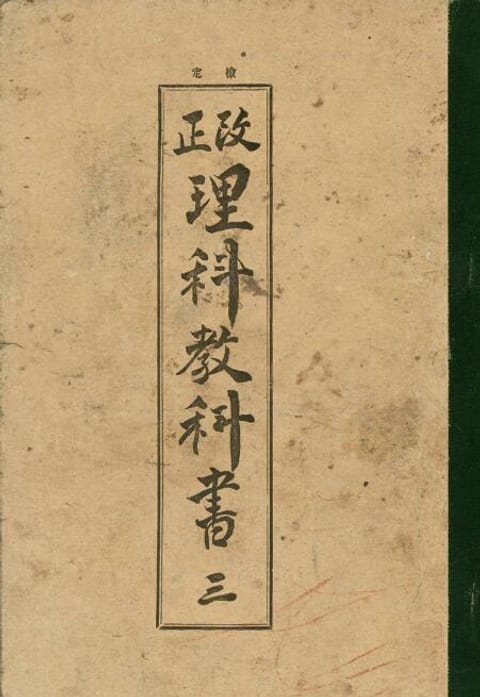 檢定
改正
理科教科書 三